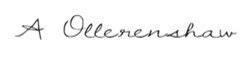 A Ollerenshaw